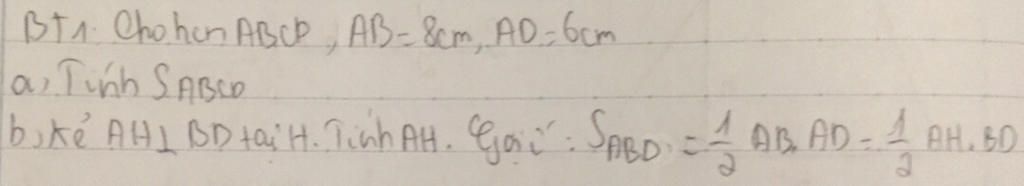 BT1. Cho hcn ABCD, AB = 8cm, AD = 6cm
a, Tính SABCD
b, Kẻ AH⊥BD tại H. Tính AH. Gợi ý: SABD = 1/2 AB.AD = 1/2 AH.BD